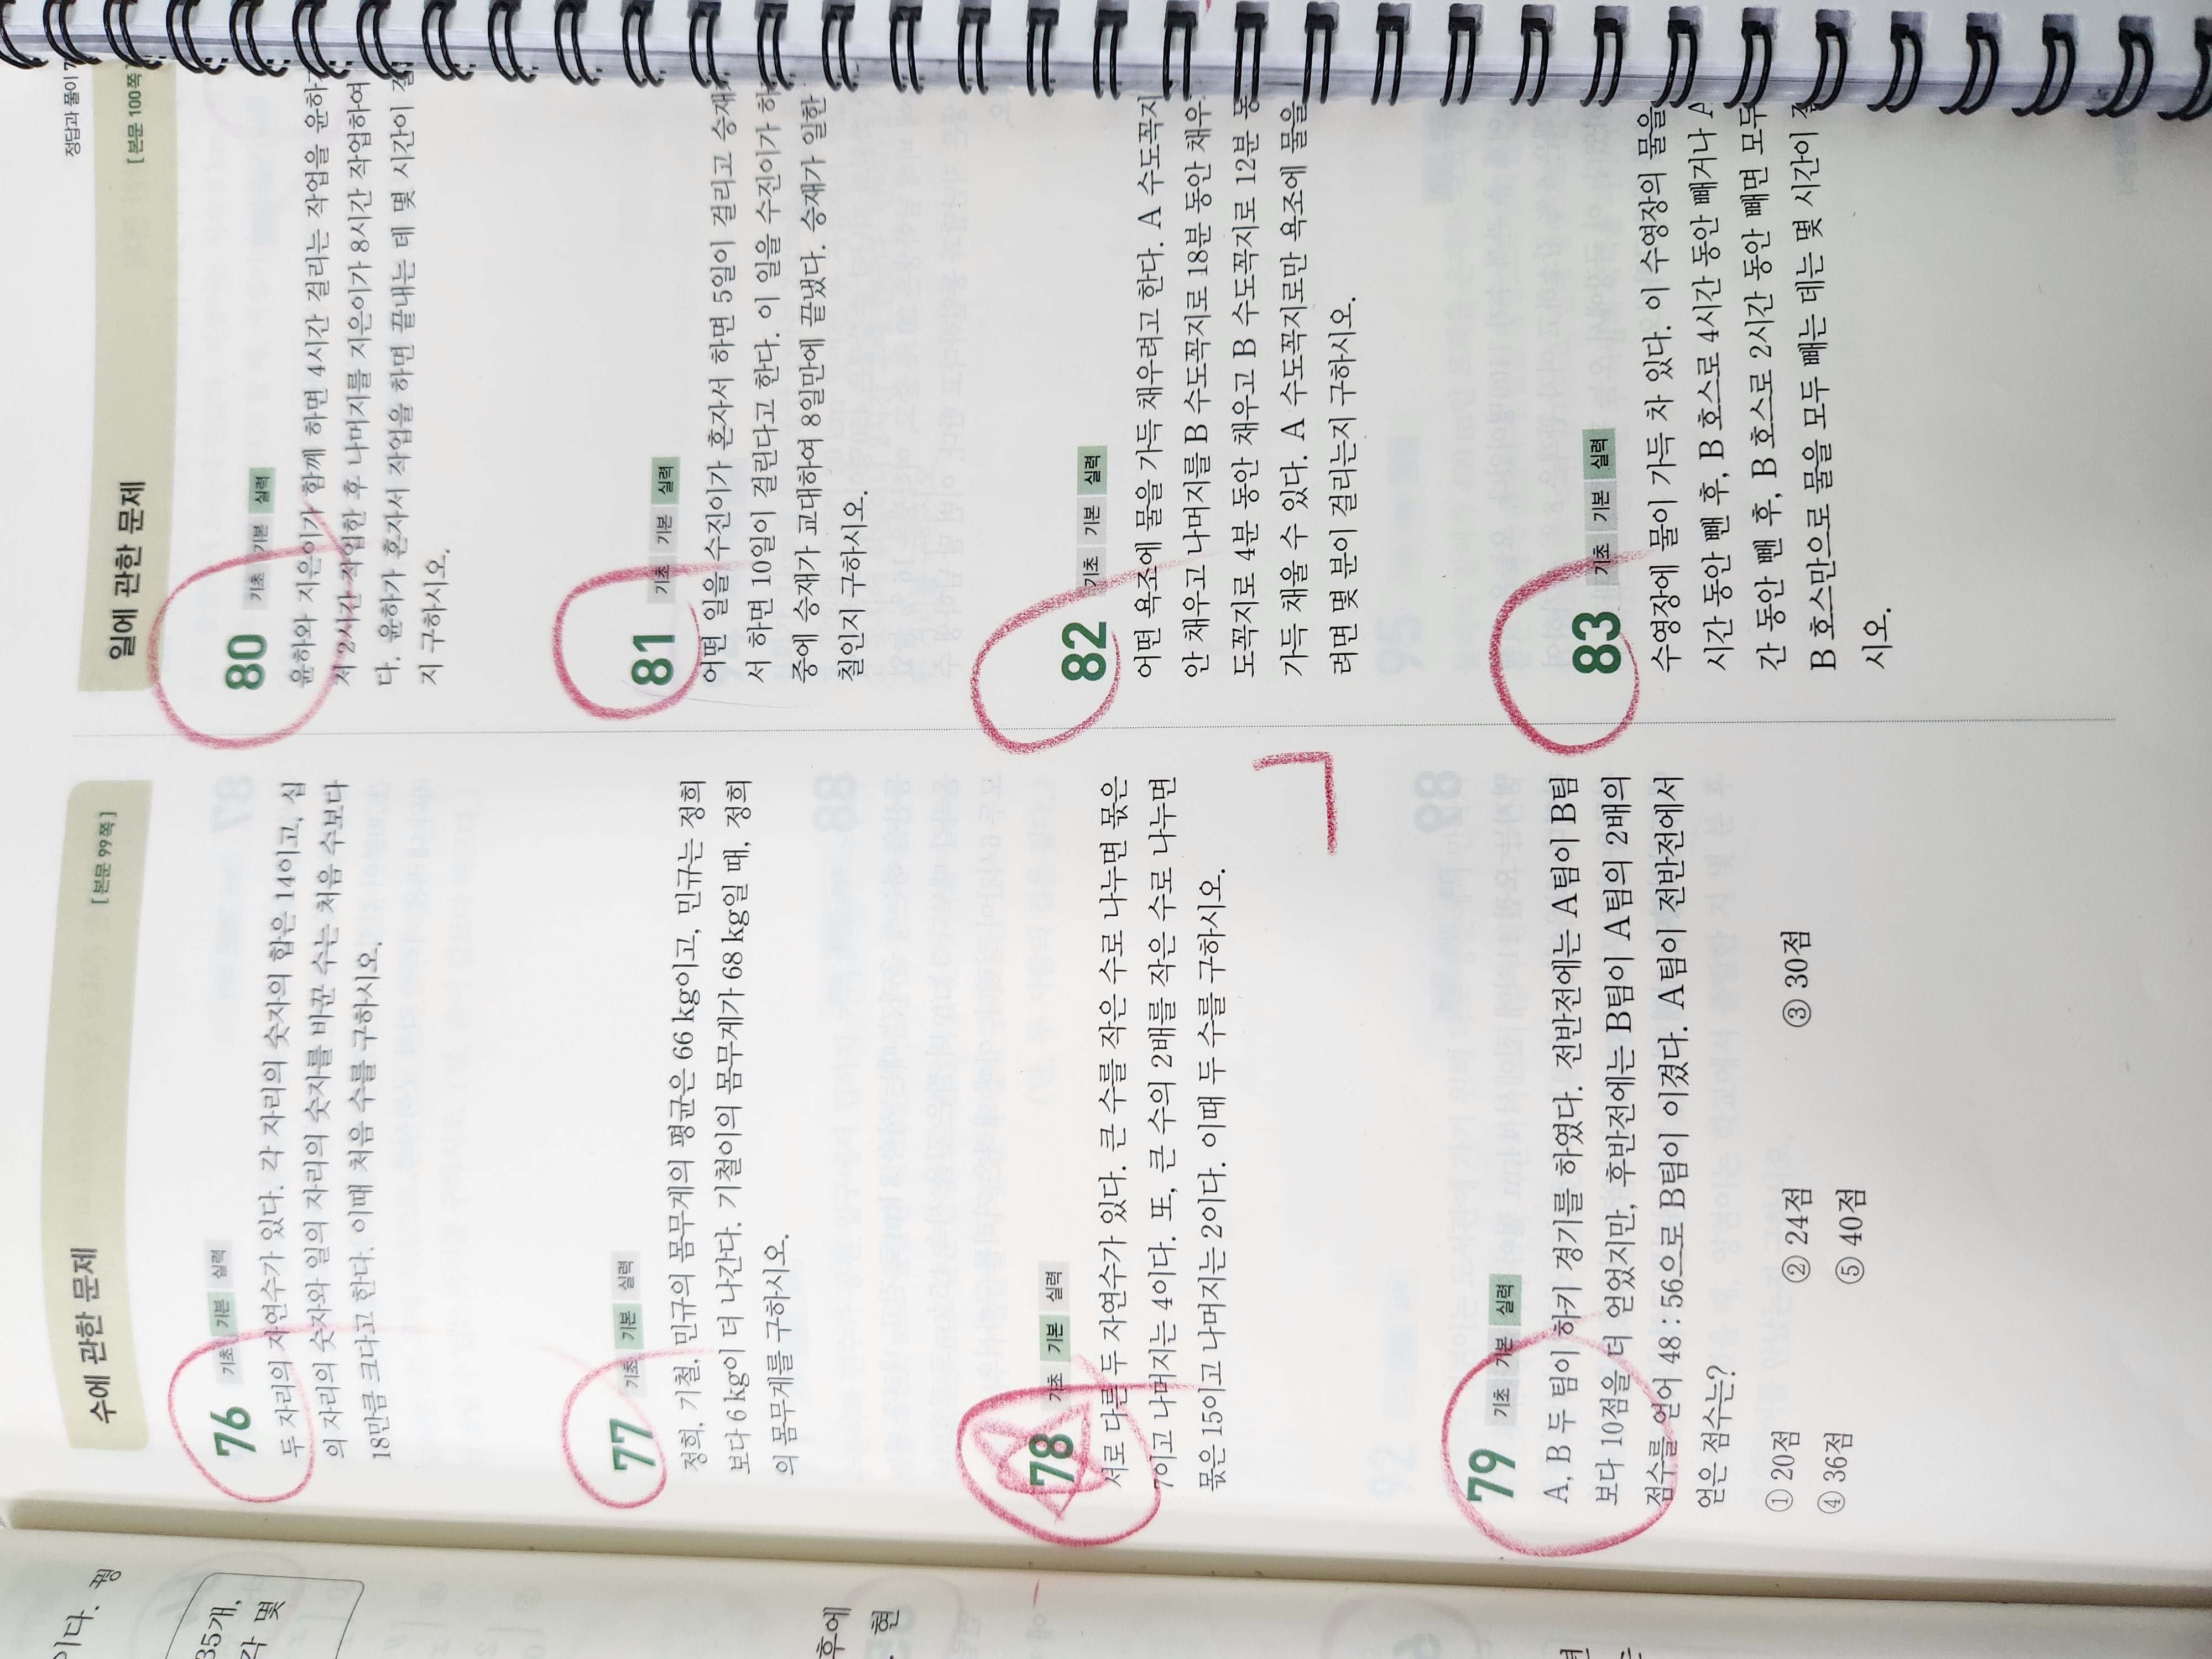 수에 관한 문제
[본문 99쪽]
76 기초 기본 실력
두 자리의 자연수가 있다. 각 자리의 숫자의 합은 14이고, 십
의 자리의 숫자와 일의 자리의 숫자를 바꾼 수는 처음 수보다
18만큼 크다고 한다. 이때 처음 수를 구하시오.
77 기초 기본 실력
정희, 기철, 민규의 몸무게의 평균은 66 kg이고, 민규는 정희
보다 6 kg이 더 나간다. 기철이의 몸무게가 68 kg일 때, 정희
의 몸무게를 구하시오.
78 기초 기본 실력
서로 다른 두 자연수가 있다. 큰 수를 작은 수로 나누면 몫은
7이고 나머지는 4이다. 또, 큰 수의 2배를 작은 수로 나누면
몫은 15이고 나머지는 2이다. 이때 두 수를 구하시오.
79 기초 기본 실력
A, B 두 팀이 하키 경기를 하였다. 전반전에는 A팀이 B팀
보다 10점을 더 얻었지만, 후반전에는 B팀이 A팀의 2배의
점수를 얻어 48 : 56으로 B팀이 이겼다. A팀이 전반전에서
얻은 점수는?
① 20점 ② 24점 ③ 30점
④ 36점 ⑤ 40점
정답과 풀이
일에 관한 문제
[본문 100쪽]
80 기초 기본 실력
윤하와 지은이가 함께 하면 4시간 걸리는 작업을 윤하
서 2시간 작업한 후 나머지를 지은이가 8시간 작업하여
다. 윤하가 혼자서 작업을 하면 끝내는 데 몇 시간이
지 구하시오.
81 기초 기본 실력
어떤 일을 수진이가 혼자서 하면 5일이 걸리고 승재
서 하면 10일이 걸린다고 한다. 이 일을 수진이가
중에 승재가 교대하여 8일만에 끝냈다. 승재가 일한
칠인지 구하시오.
82 기초 기본 실력
어떤 욕조에 물을 가득 채우려고 한다. A 수도꼭지
안 채우고 나머지를 B 수도꼭지로 18분 동안 채우
도꼭지로 4분 동안 채우고 B 수도꼭지로 12분
가득 채울 수 있다. A 수도꼭지로만 욕조에 물을
려면 몇 분이 걸리는지 구하시오.
83 기초 기본 실력
수영장에 물이 가득 차 있다. 이 수영장의 물을
시간 동안 뺀 후, B 호스로 4시간 동안 빼거나 A
간 동안 뺀 후, B 호스로 2시간 동안 빼면 모두
B 호스만으로 물을 모두 빼는 데는 몇 시간이
시오.
이다. 평
35개,
각 몇
후에
현